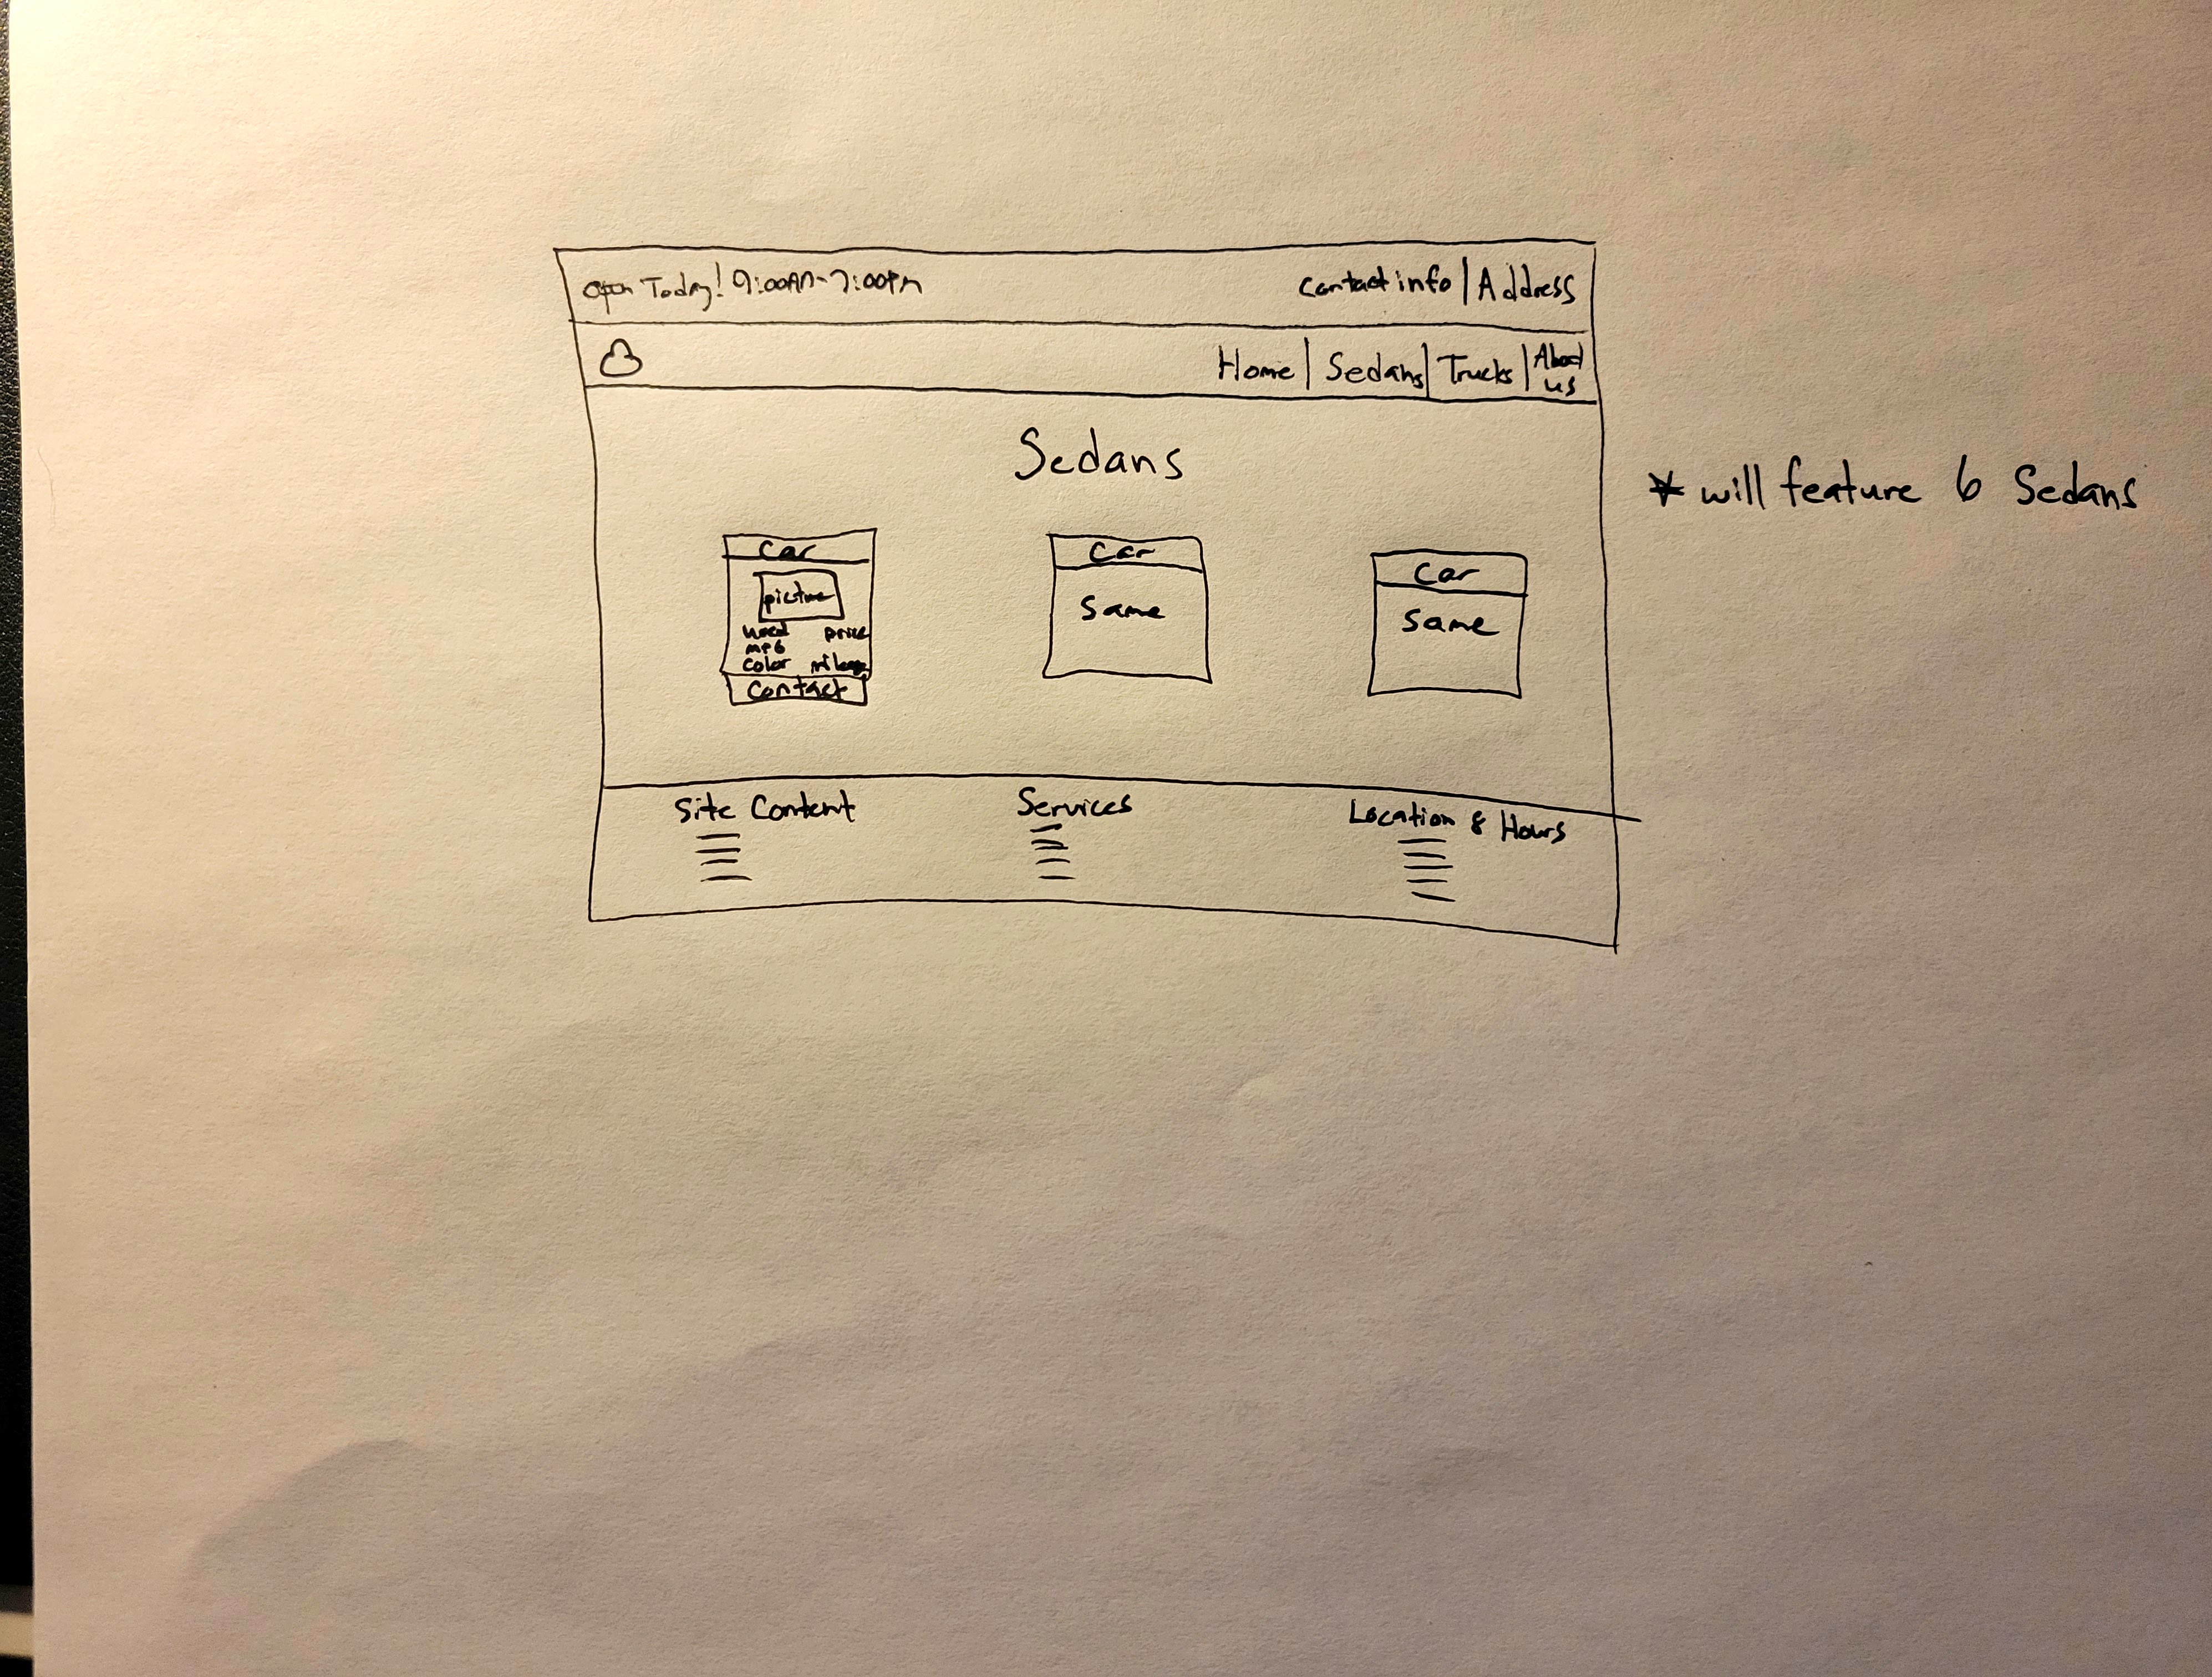 Open Today! 9:00AM-7:00PM
Contact info | Address
Home | Sedans | Trucks | About us
Sedans
* will feature 6 Sedans
Car
picture
used price
MPG
color mileage
Contact
Car
Same
Car
Same
Site Content
Services
Location & Hours